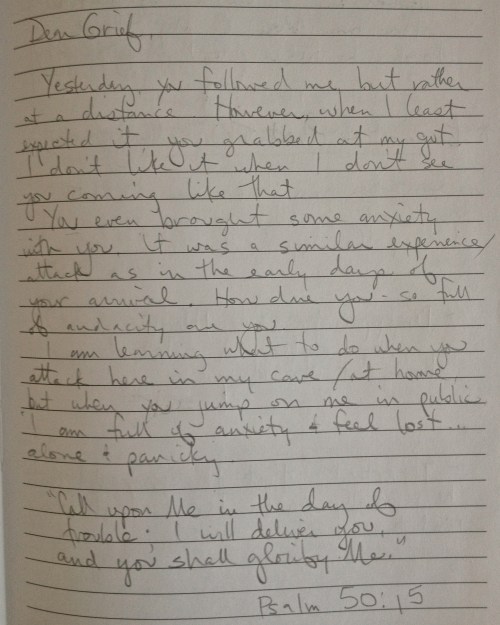 Dear Grief,
Yesterday, you followed me, but rather
at a distance. However, when I least
expected it you grabbed at my gut.
I don't like it when I don't see
you coming like that.
You even brought some anxiety
with you. It was a similar experience/
attack as in the early days of
your arrival. How dare you - so full
of audacity are you.
I am learning what to do when you
attack here in my cave/at home
but when you jump on me in public
I am full of anxiety & feel lost...
alone & panicky
"Call upon Me in the day of
trouble; I will deliver you,
and you shall glorify Me."
Psalm 50:15